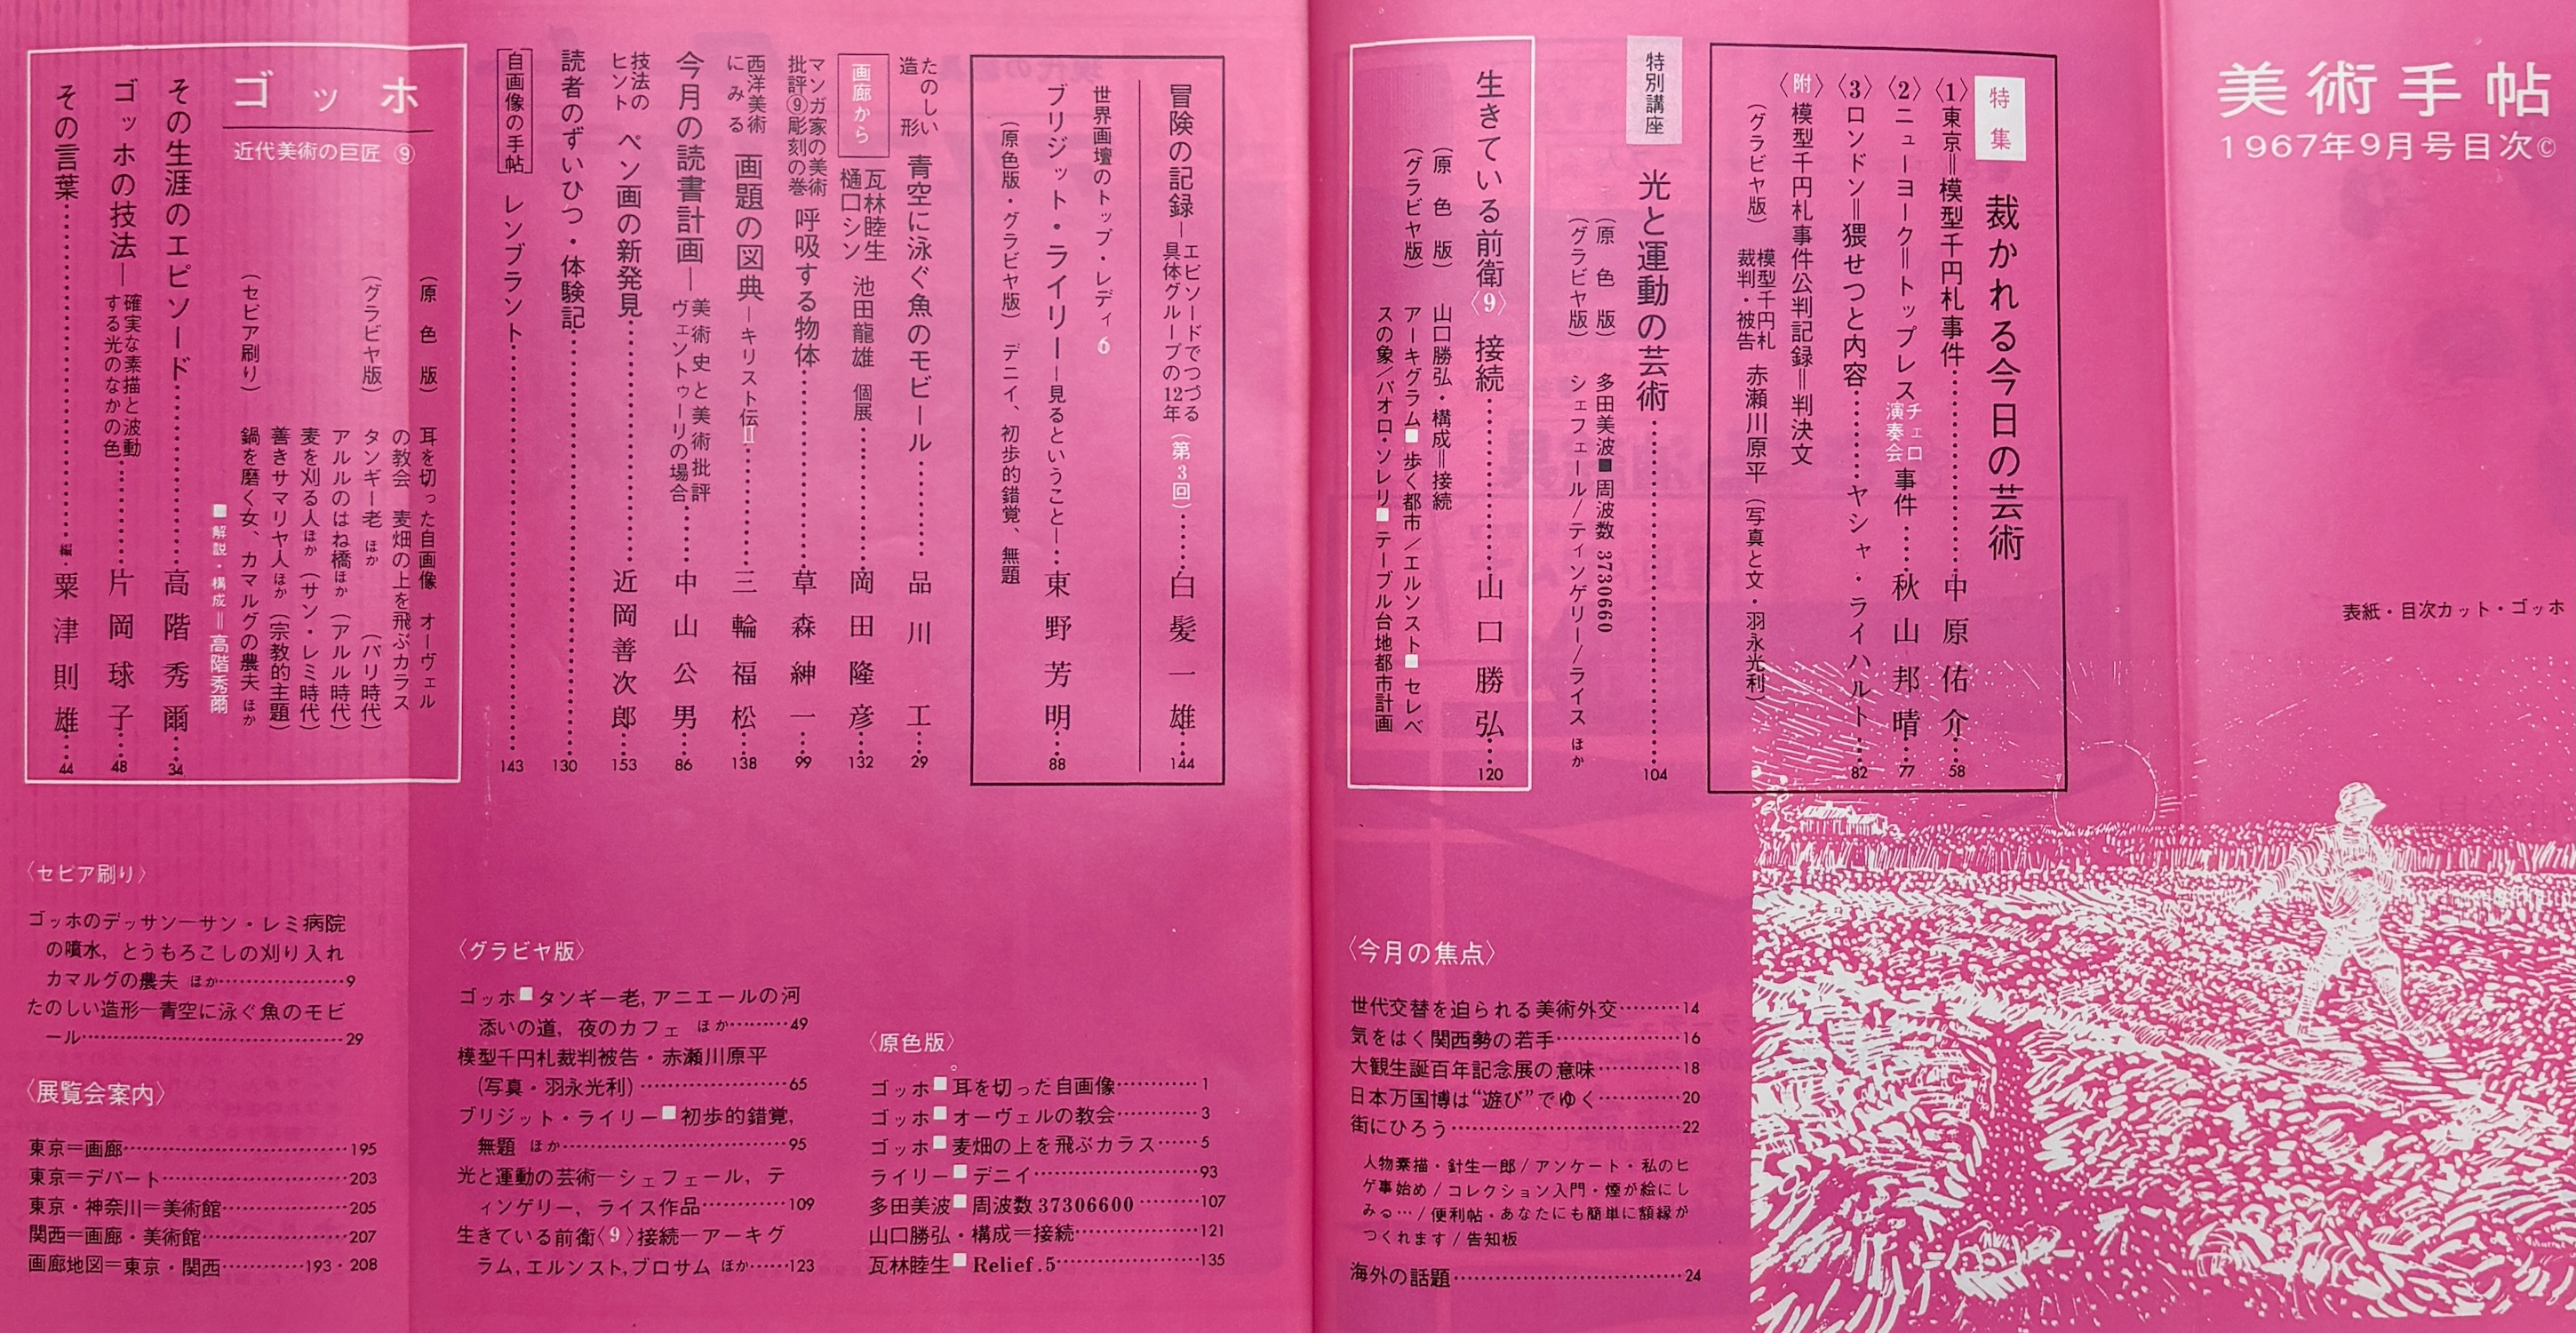 美術手帖
1967年9月号目次©
表紙・目次カット・ゴッホ
特集
裁かれる今日の芸術
〈1〉東京＝模型千円札事件……中原佑介……58
〈2〉ニューヨーク＝トップレス チェロ演奏会 事件……秋山邦晴……77
〈3〉ロンドン＝猥せつと内容……ヤシャ・ライハルト……82
〈附〉模型千円札事件公判記録＝判決文
（グラビヤ版） 模型千円札裁判・被告 赤瀬川原平（写真と文・羽永光利）
特別講座
光と運動の芸術……104
（原色版） 多田美波■周波数 3730660
（グラビヤ版） シェフェール/ティンゲリー/ライス ほか
生きている前衛〈9〉 接続……山口勝弘……120
（原色版） 山口勝弘・構成＝接続
（グラビヤ版） アーキグラム■歩く都市/エルンスト■セレベ
スの象/パオロ・ソレリ■テーブル台地都市計画
冒険の記録―エピソードでつづる具体グループの12年（第3回）……白髪一雄……144
世界画壇のトップ・レディ 6
ブリジット・ライリー―見るということ―……東野芳明……88
（原色版・グラビヤ版） デニイ、初歩的錯覚、無題
たのしい造形 青空に泳ぐ魚のモビール……品川工……29
画廊から 瓦林睦生 樋口シン 池田龍雄 個展……岡田隆彦……132
マンガ家の美術批評⑨彫刻の巻 呼吸する物体……草森紳一……99
西洋美術にみる 画題の図典―キリスト伝Ⅱ……三輪福松……138
今月の読書計画―美術史と美術批評 ヴェントゥーリの場合……中山公男……86
技法のヒント ペン画の新発見……近岡善次郎……153
読者のずいひつ・体験記……130
自画像の手帖 レンブラント……143
ゴッホ
近代美術の巨匠 ⑨
（原色版） 耳を切った自画像 オーヴェル
の教会 麦畑の上を飛ぶカラス
（グラビヤ版） タンギー老 ほか （パリ時代）
アルルのはね橋ほか （アルル時代）
麦を刈る人ほか （サン・レミ時代）
善きサマリヤ人ほか （宗教的主題）
（セピア刷り） 鍋を磨く女、カマルグの農夫 ほか
■解説・構成＝高階秀爾
その生涯のエピソード……高階秀爾……34
ゴッホの技法―確実な素描と波動する光のなかの色……片岡球子……48
その言葉……編・粟津則雄……44
〈セピア刷り〉
ゴッホのデッサン―サン・レミ病院
の噴水，とうもろこしの刈り入れ
カマルグの農夫 ほか……9
たのしい造形―青空に泳ぐ魚のモビ
ール……29
〈展覧会案内〉
東京＝画廊……195
東京＝デパート……203
東京・神奈川＝美術館……205
関西＝画廊・美術館……207
画廊地図＝東京・関西……193・208
〈グラビヤ版〉
ゴッホ■タンギー老, アニエールの河
添いの道，夜のカフェ ほか……49
模型千円札裁判被告・赤瀬川原平
(写真・羽永光利)……65
ブリジット・ライリー■初歩的錯覚，
無題 ほか……95
光と運動の芸術―シェフェール，テ
ィンゲリー，ライス作品……109
生きている前衛〈9〉接続―アーキグ
ラム, エルンスト, ブロサム ほか……123
〈原色版〉
ゴッホ■耳を切った自画像……1
ゴッホ■オーヴェルの教会……3
ゴッホ■麦畑の上を飛ぶカラス……5
ライリー■デニイ……93
多田美波■周波数37306600……107
山口勝弘・構成＝接続……121
瓦林睦生■Relief.5……135
〈今月の焦点〉
世代交替を迫られる美術外交……14
気をはく関西勢の若手……16
大観生誕百年記念展の意味……18
日本万国博は“遊び”でゆく……20
街にひろう……22
人物素描・針生一郎/アンケート・私のヒ
ゲ事始め/コレクション入門・煙が絵にし
みる…/便利帖・あなたにも簡単に額縁が
つくれます/告知板
海外の話題……24